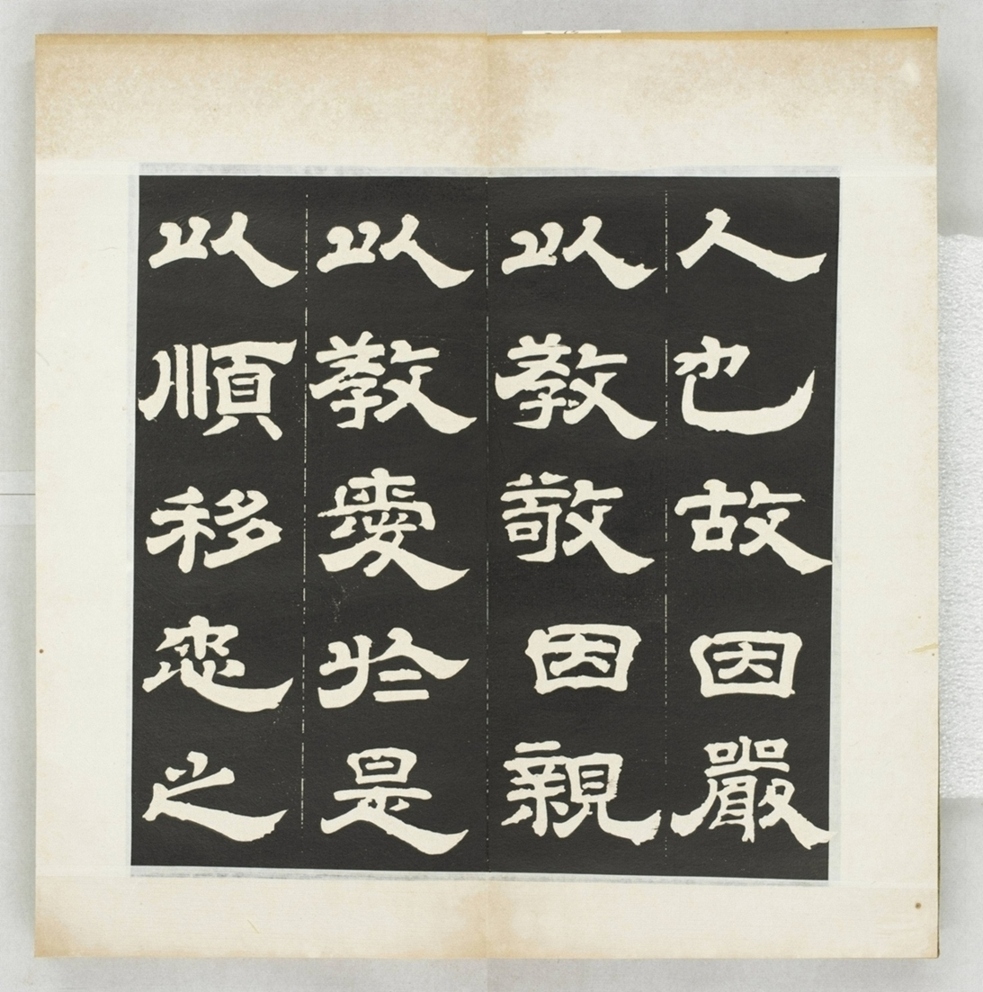 人也故因嚴
以教敬因親
以教愛於是
以順移忠之